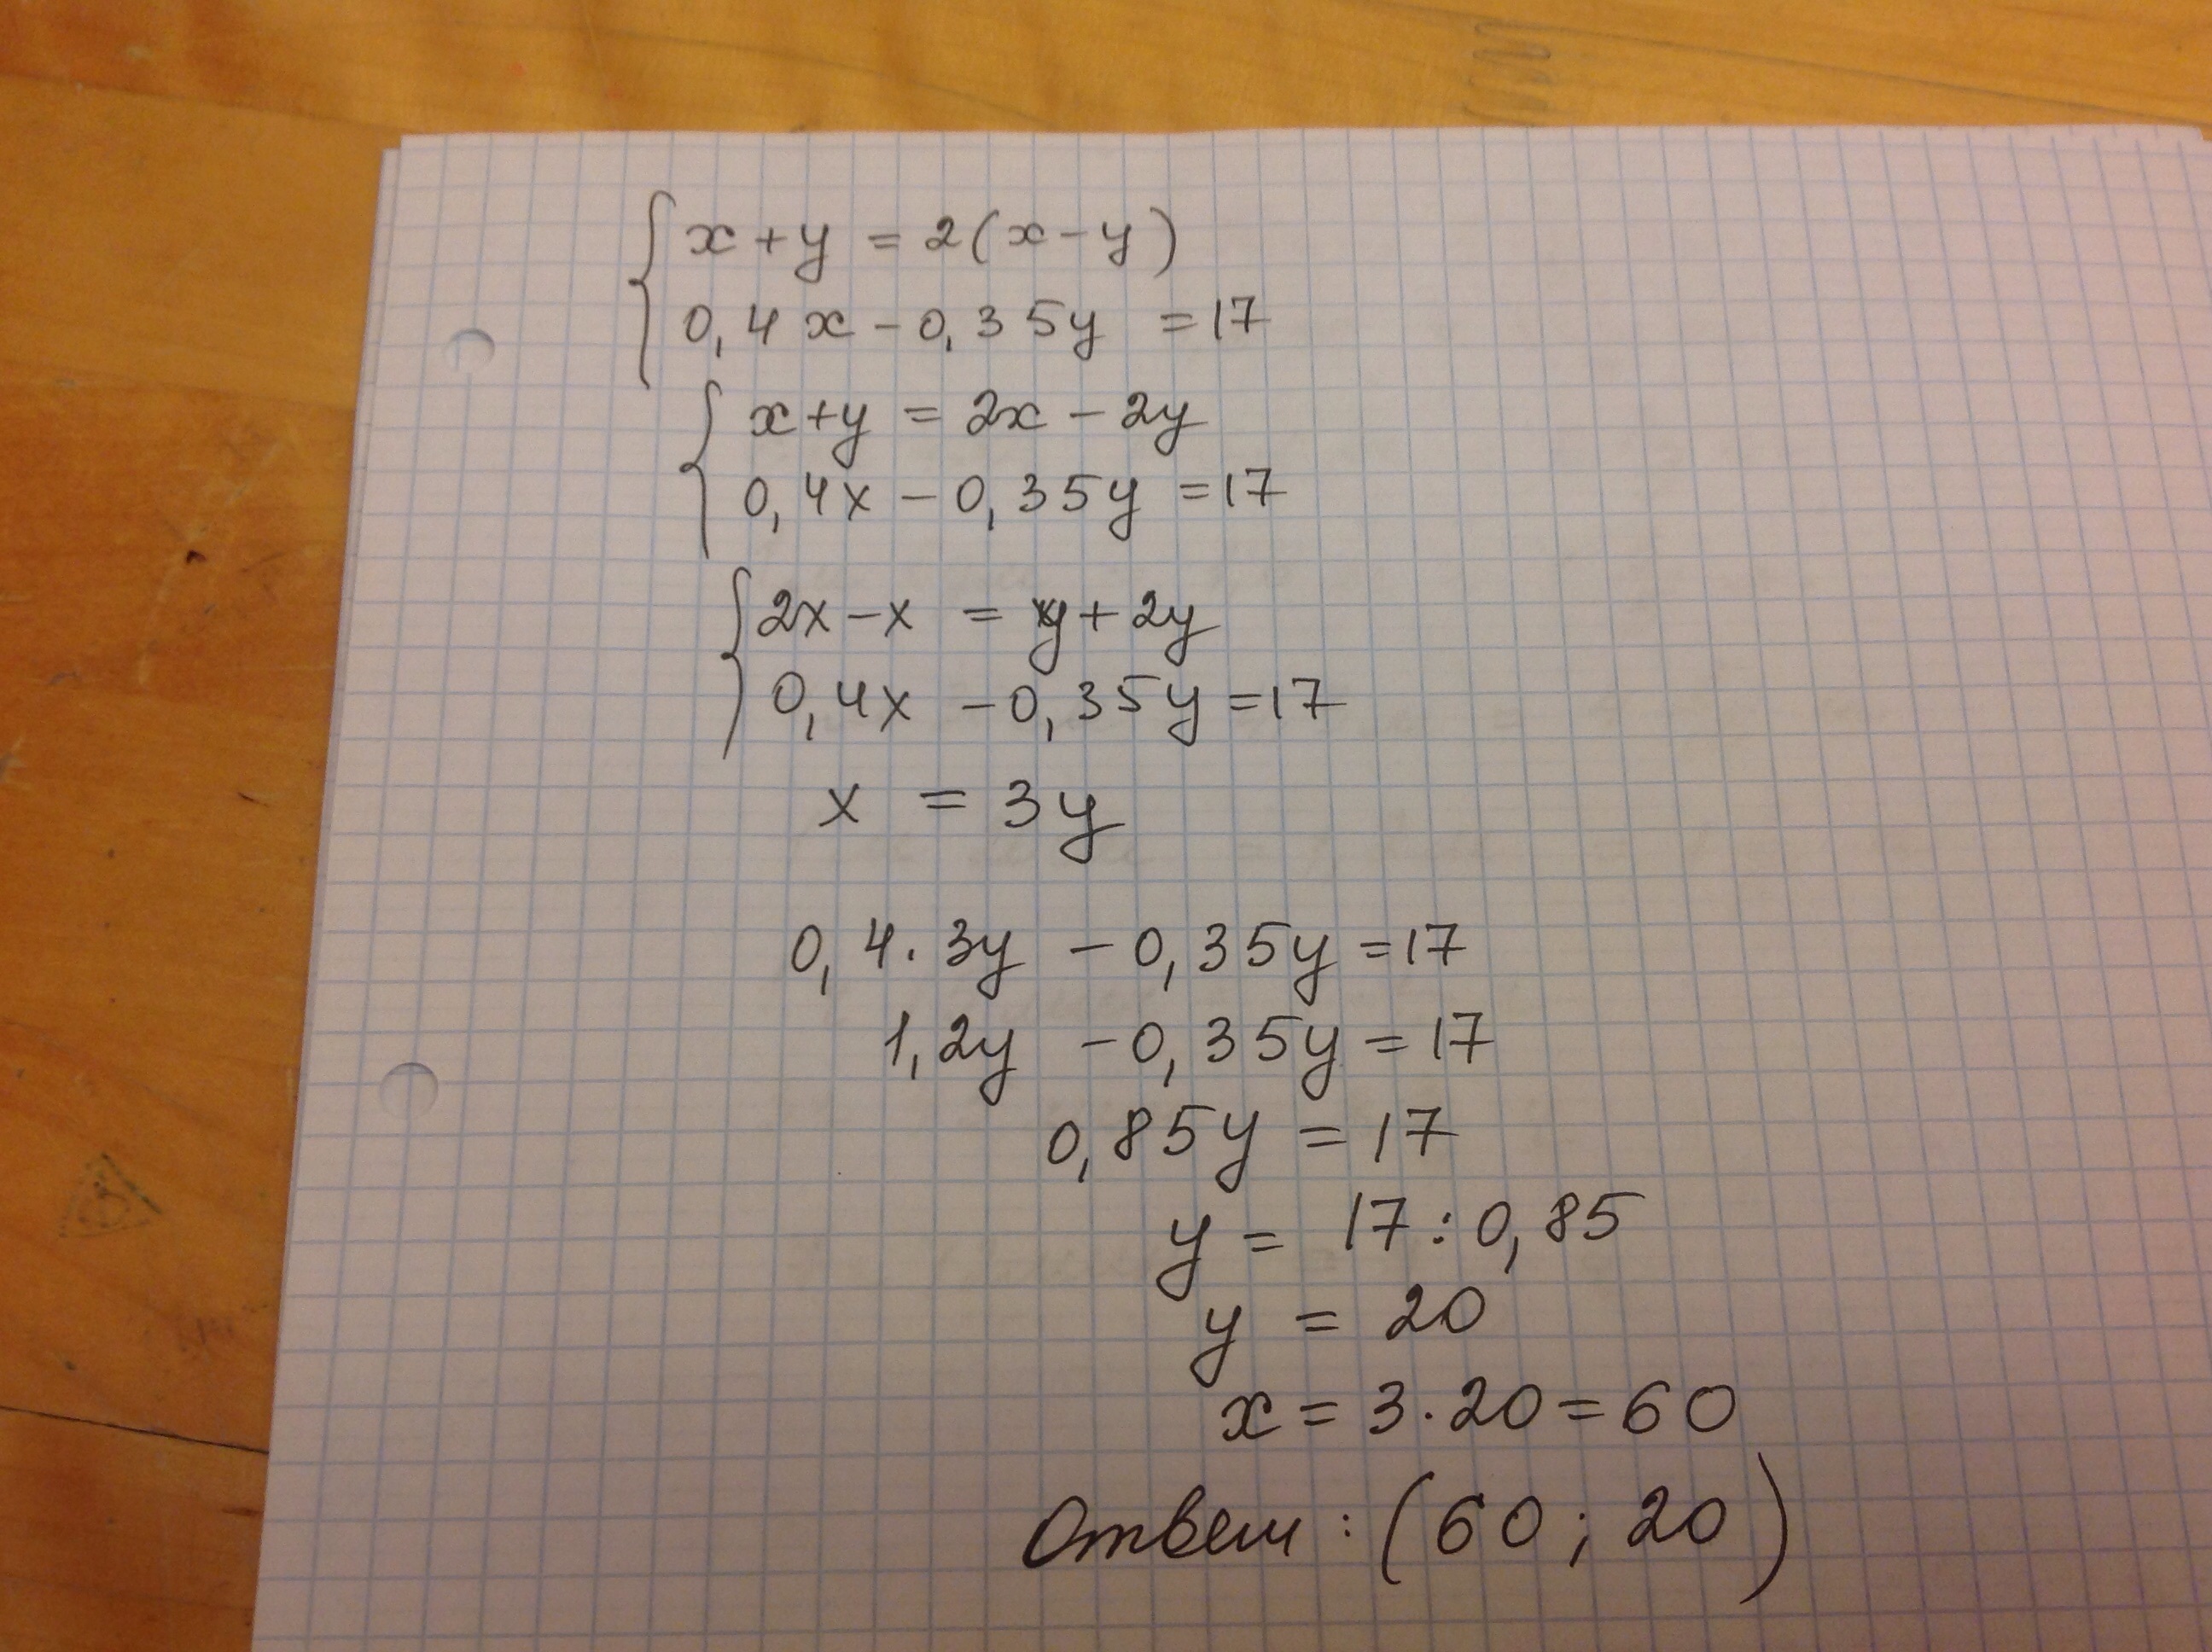 x + y = 2(x - y)
0,4x - 0,35y = 17
x + y = 2x - 2y
0,4x - 0,35y = 17
2x - x = y + 2y
0,4x - 0,35y = 17
x = 3y
0,4 · 3y - 0,35y = 17
1,2y - 0,35y = 17
0,85y = 17
y = 17 : 0,85
y = 20
x = 3 · 20 = 60
Ответ : (60 ; 20)